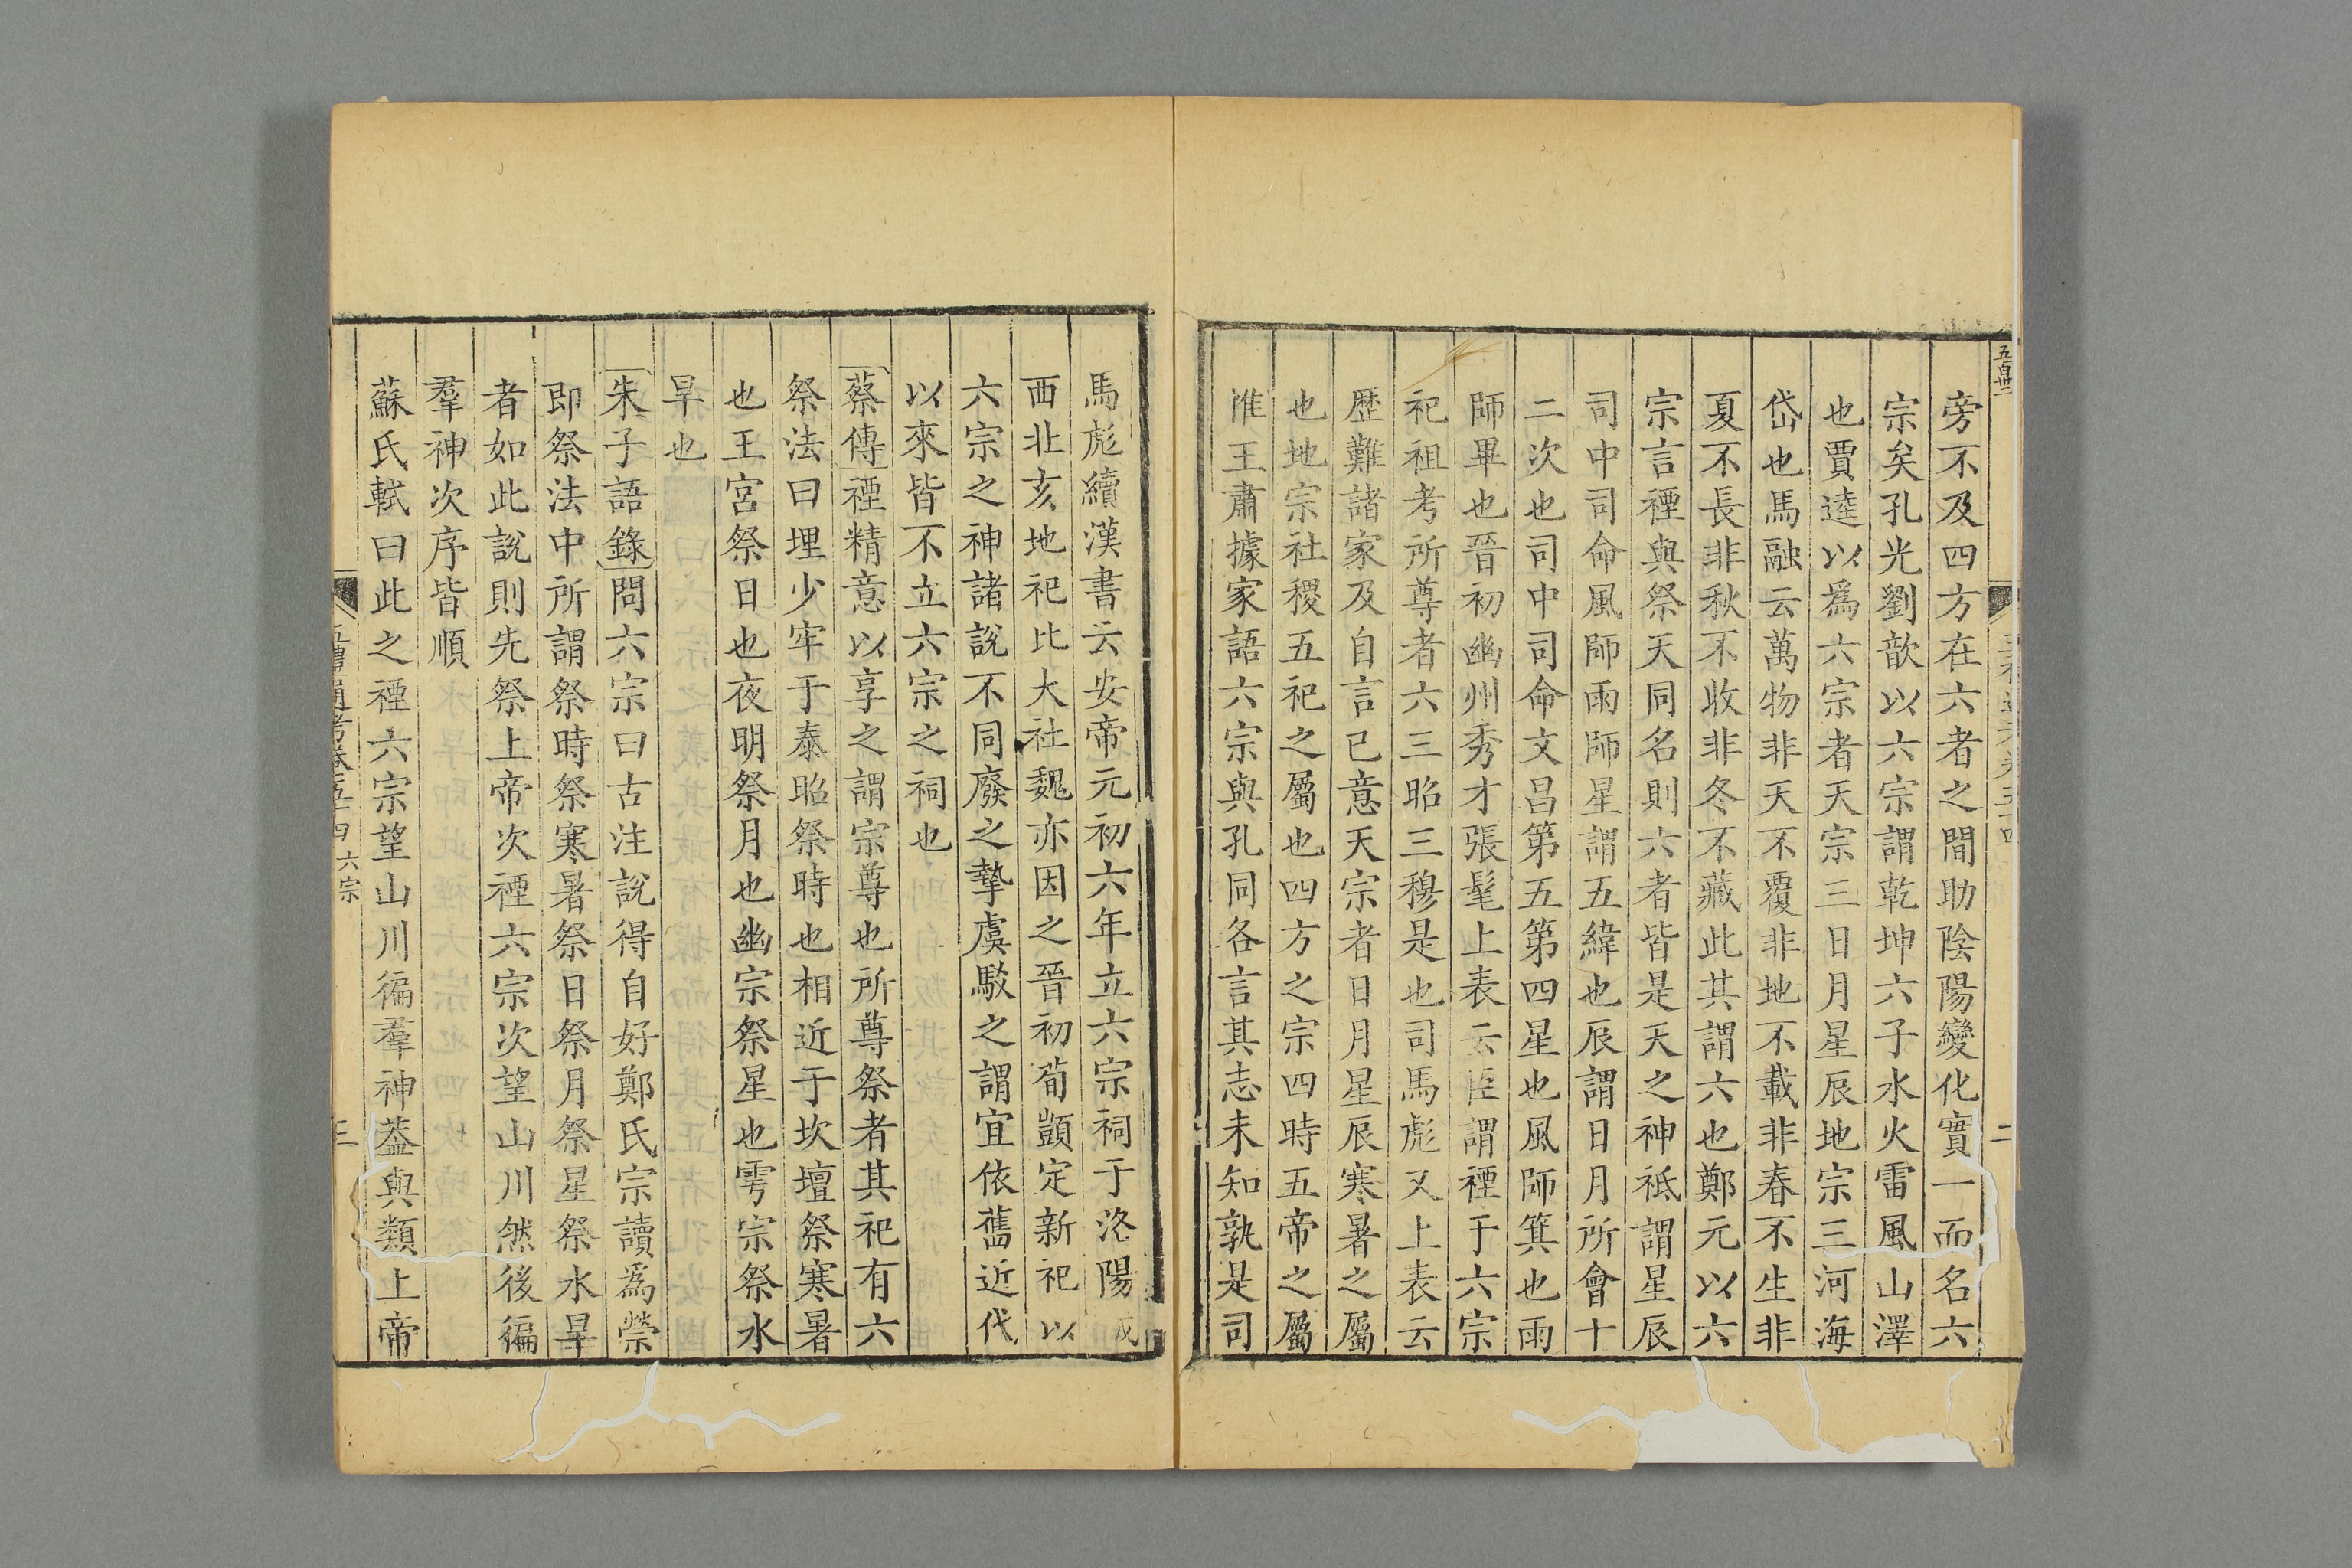 五百卌二
旁不及四方在六者之間助陰陽變化實一而名六
宗矣孔光劉歆以六宗謂乾坤六子水火雷風山澤
也賈逵以爲六宗者天宗三日月星辰地宗三河海
岱也馬融云萬物非天不覆非地不載非春不生非
夏不長非秋不收非冬不藏此其謂六也鄭元以六
宗言禋與祭天同名則六者皆是天之神祗謂星辰
司中司命風師雨師星謂五緯也辰謂日月所會十
二次也司中司命文昌第五第四星也風師箕也雨
師畢也晉初幽州秀才張髦上表云臣謂禋于六宗
祀祖考所尊者六三昭三穆是也司馬彪又上表云
歷難諸家及自言己意天宗者日月星辰寒暑之屬
也地宗社稷五祀之屬也四方之宗四時五帝之屬
惟王肅據家語六宗與孔同各言其志未知孰是司
馬彪續漢書云安帝元初六年立六宗祠于洛陽
西北亥地祀比大社魏亦因之晉初荀顗定新祀以
六宗之神諸說不同廢之摯虞駁之謂宜依舊近代
以來皆不立六宗之祠也
蔡傳禋精意以享之謂宗尊也所尊祭者其祀有六
祭法曰埋少牢于泰昭祭時也相近于坎壇祭寒暑
也王宮祭日也夜明祭月也幽宗祭星也雩宗祭水
旱也
朱子語錄問六宗曰古注說得自好鄭氏宗讀爲禜
即祭法中所謂祭時祭寒暑祭日祭月祭星祭水旱
者如此說則先祭上帝次禋六宗次望山川然後徧
羣神次序皆順
蘇氏軾曰此之禋六宗望山川徧羣神葢與類上帝
五禮通考卷五十四 六宗 三